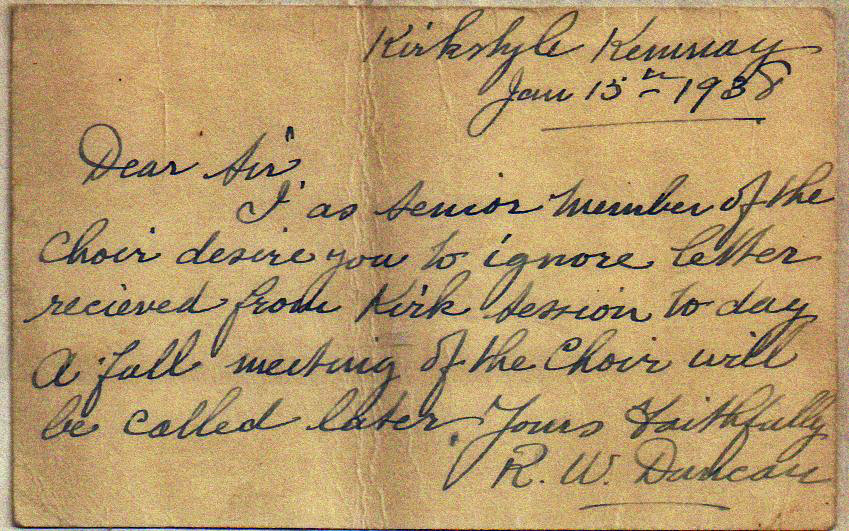 Kirkstyle Kemnay
Jan 15th 1938
Dear Sir
I as senior member of the
Choir desire you to ignore letter
recieved from Kirk Session to day
A full meeting of the Choir will
be called later. Yours Faithfully
R. W. Duncan